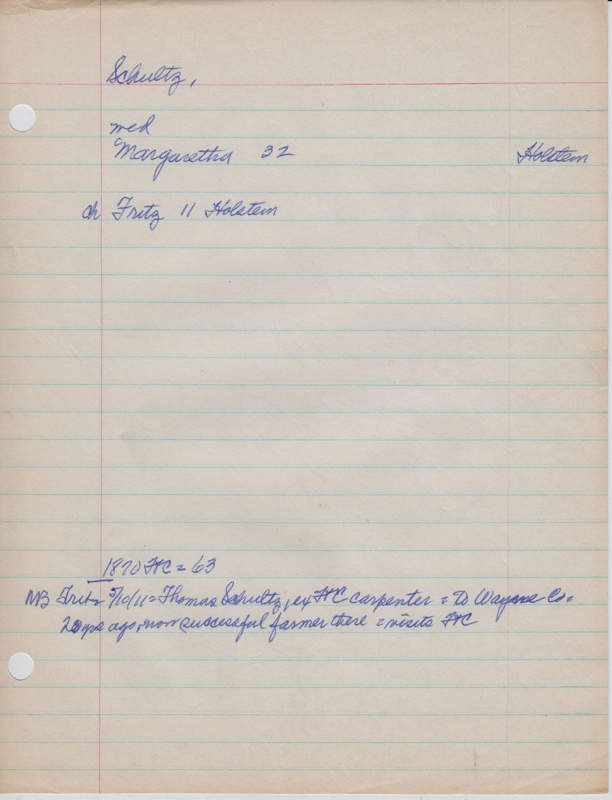 Schultz,
med
Margaretha 32 Holstein
ch Fritz 11 Holstein
1870 HC = 63
NB Fritz 3/10/11 = Thomas Schultz, ex HC carpenter = to Wayne Co =
20 yrs ago, now successful farmer there = visits HC